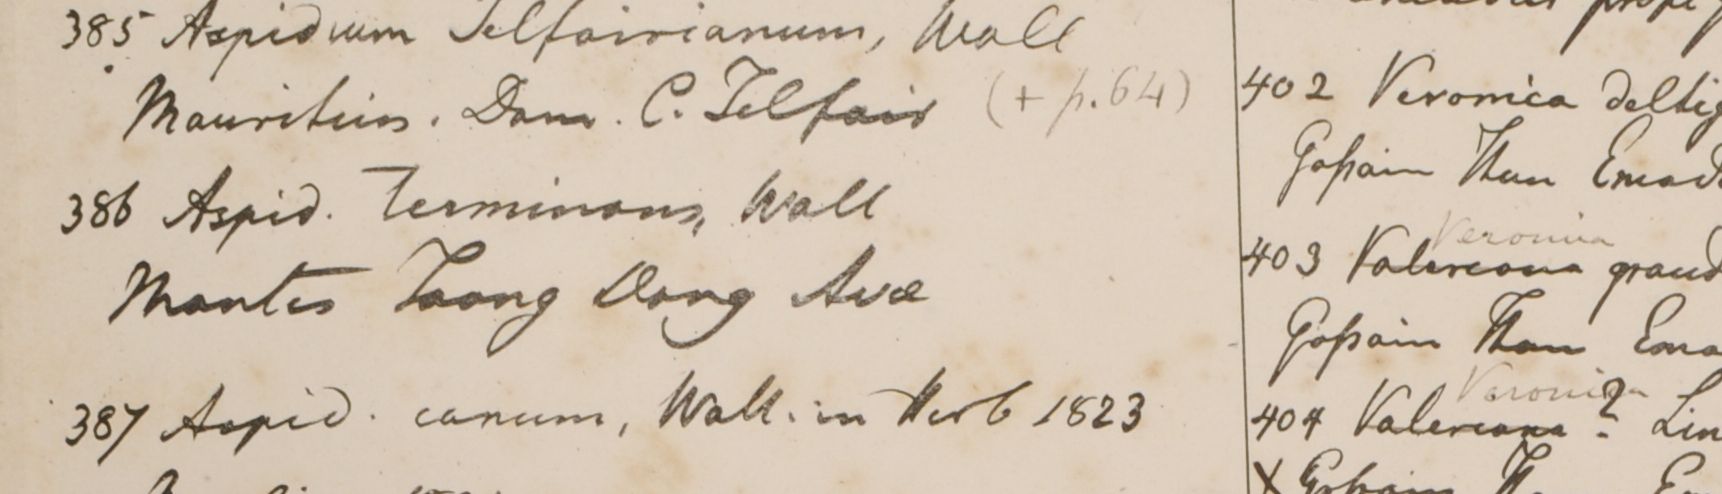 385 Aspidium Telfairianum, Wall
Mauritius. Dom. C. Telfair (+ p. 64)
386 Aspid. Terminans, Wall
Montes Taong Dong Avæ
387 Aspid. canum, Wall. in Herb 1823
402 Veronica deltig
Goſsain Than Emod
Veronica
403 Valereana grand
Goſsain Than Emo
Veronica
404 Valereana? Lin
X Goſsain Th